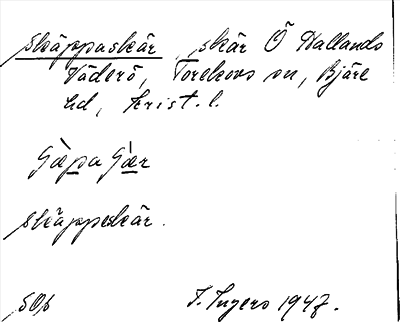 Skäppaskär, skär Ö Hallands
Väderö, Torekovs sn, Bjäre
hd, Krist. l.
skäppeskär.
50,6
I. Ingers 1947.